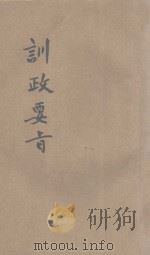 訓政要旨
研狗
mtoou.info